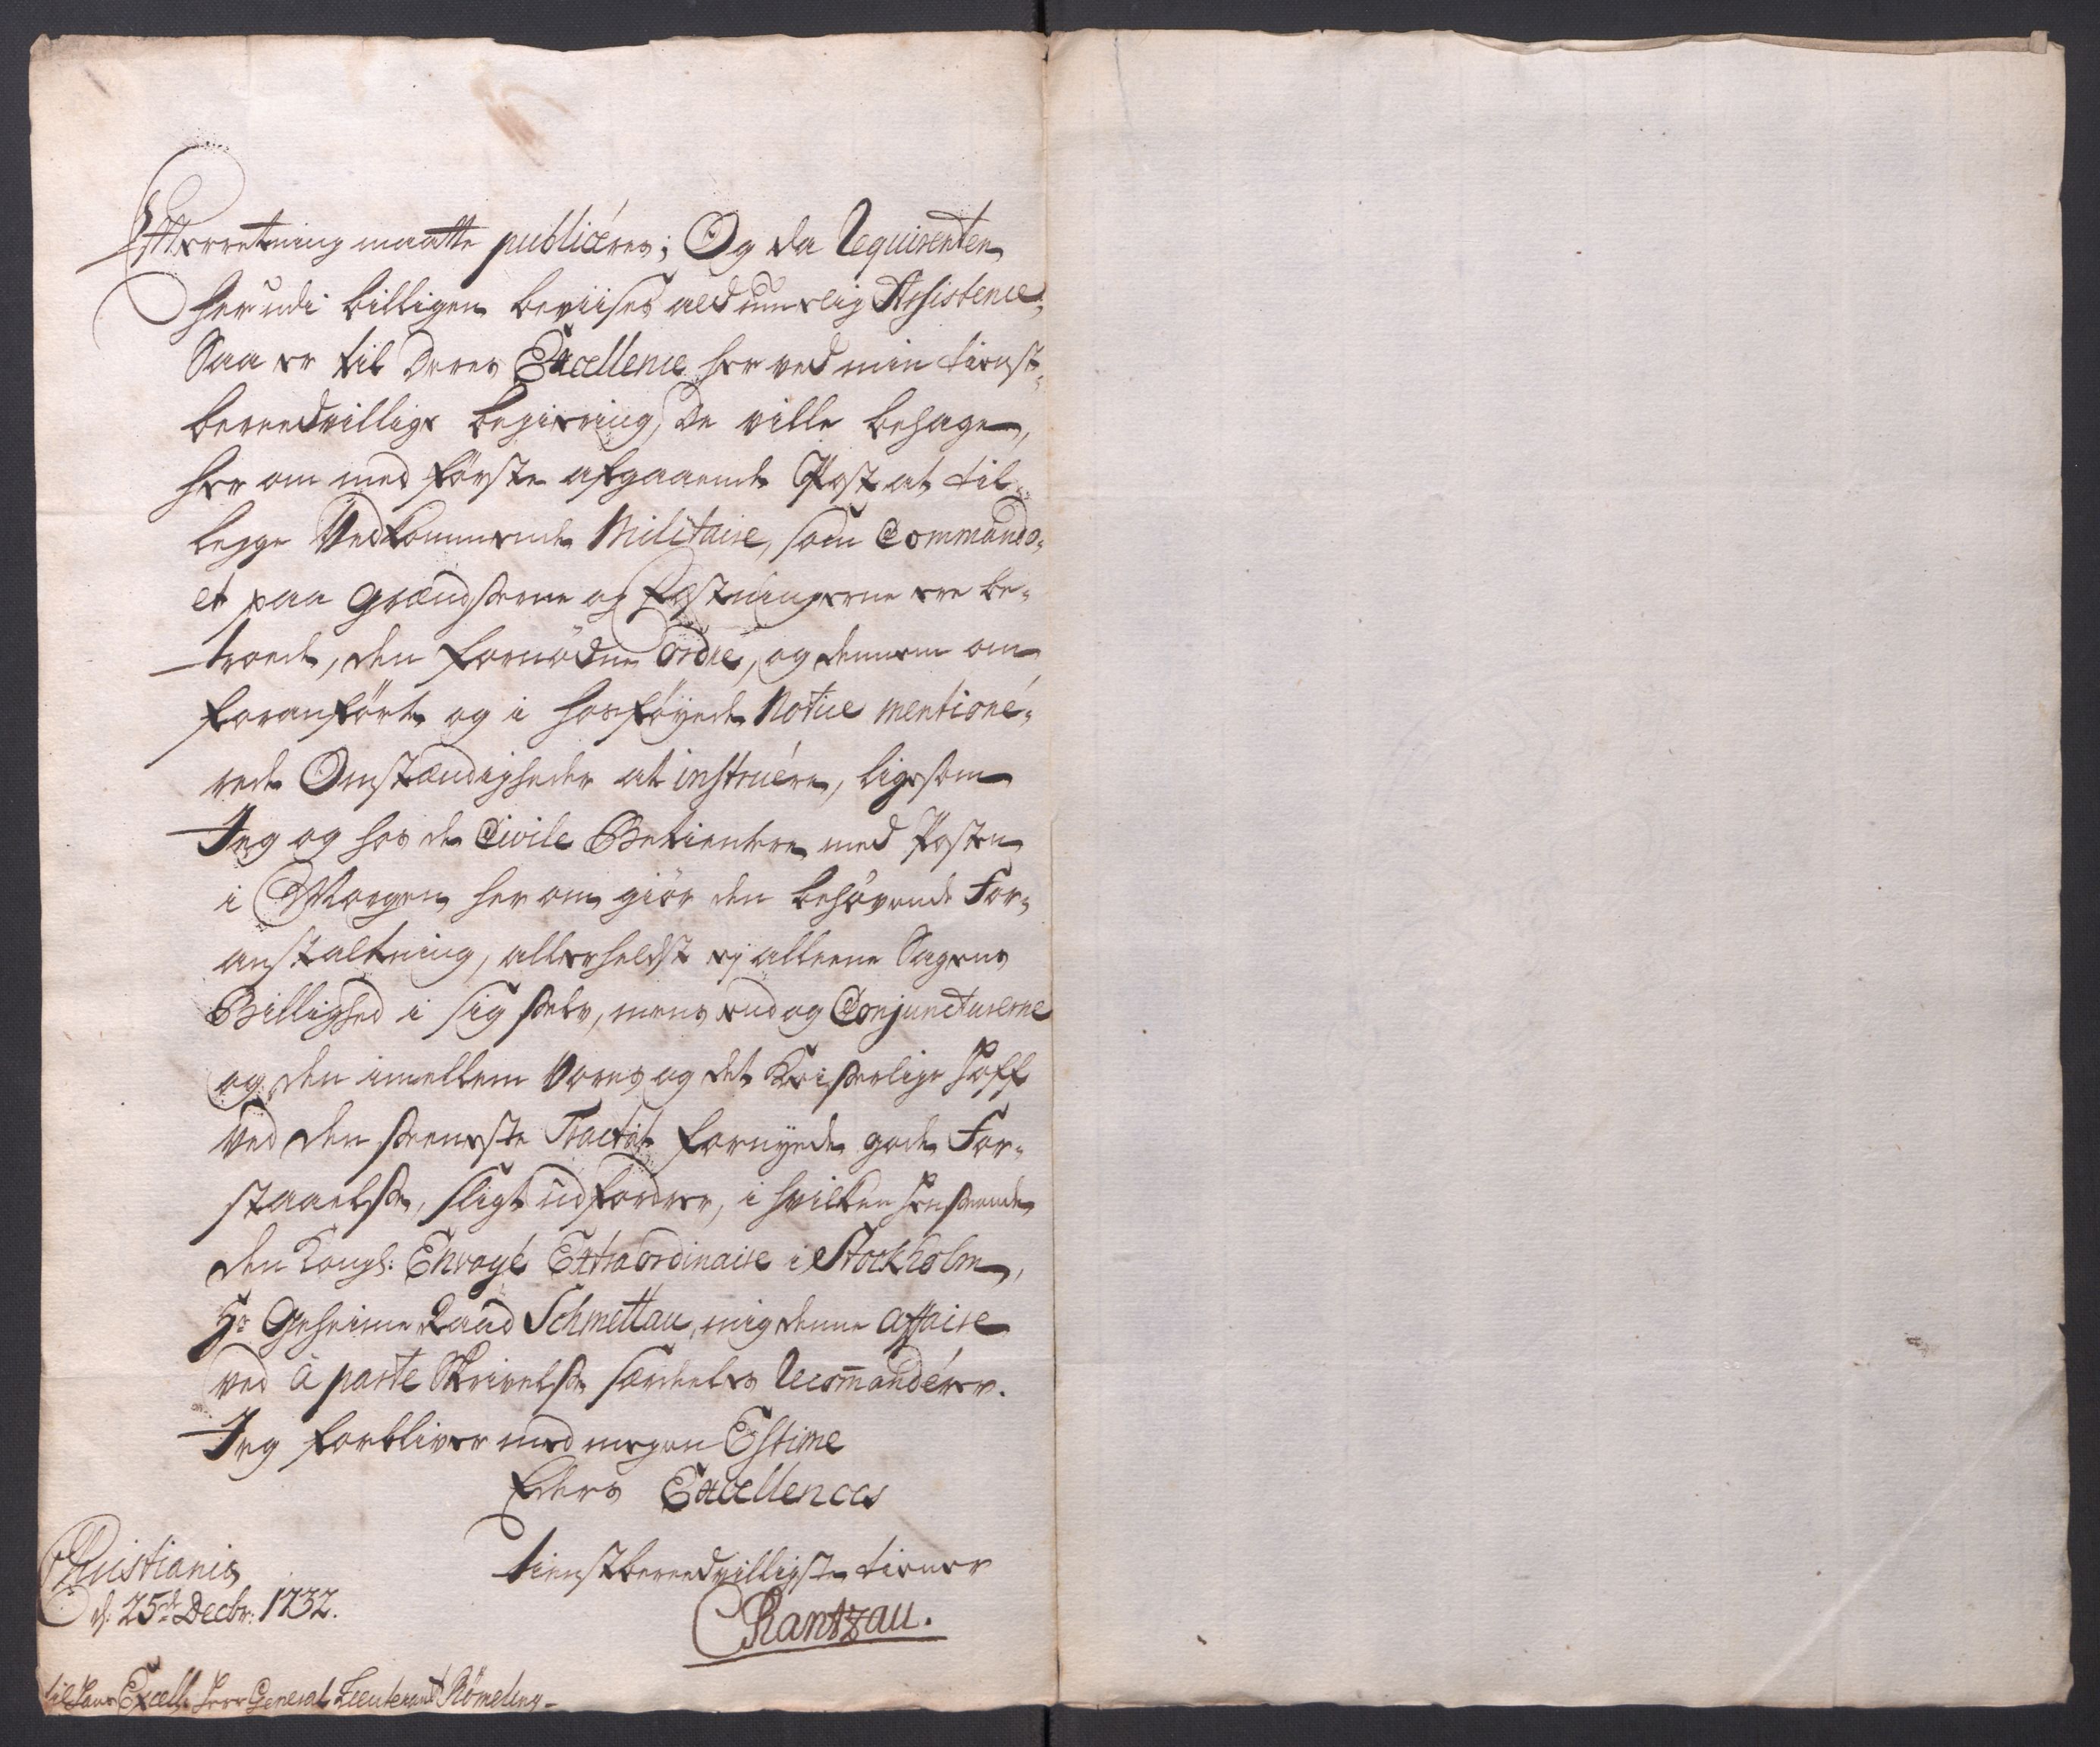 Efterretning maatte publiceres; Og da Requirenten
herudi billigen beviises ald muelig Assistence,
Saa er til Deres Excellence her ved min tienst-
bereedvillige begiering, De ville behage,
her om med förste afgaaende Post at til-
legge Vedkommende Militaire, som Commando-
et paa Grændserne og Fæstningerne ere be-
troede, den fornödne Ordre, og dennem om
foranförte og i hosföyede Notice mentione-
rede Omstændigheder at instruére, ligesom
Jeg og hos de Civile Betientere med Posten
i Morgen her om giör den behövende For-
anstaltning, allerheldst ej alleene Sagens
Billighed i sig selv, mens endog Conjuncturerne
og den imellem Vores og det Keiserlige Hoff
ved den seeneste Tractat fornyede gode For-
staaelse, sligt udfordrer, i hvilken henseende
den Kongl: Envoyé Extraordinaire i Stockholm,
Hr Geheime Raad Schmettau, mig denne Affaire
ved à parte Skrivelse særdeles recom̄andérer.
Jeg forbliver med megen Estime
Eders Excellences
tienstbereedvilligste tiener
Christiania
d: 25de Decbr: 1732.
CRantzau.
til Hans Excell: Herr General Lieutenant Römeling